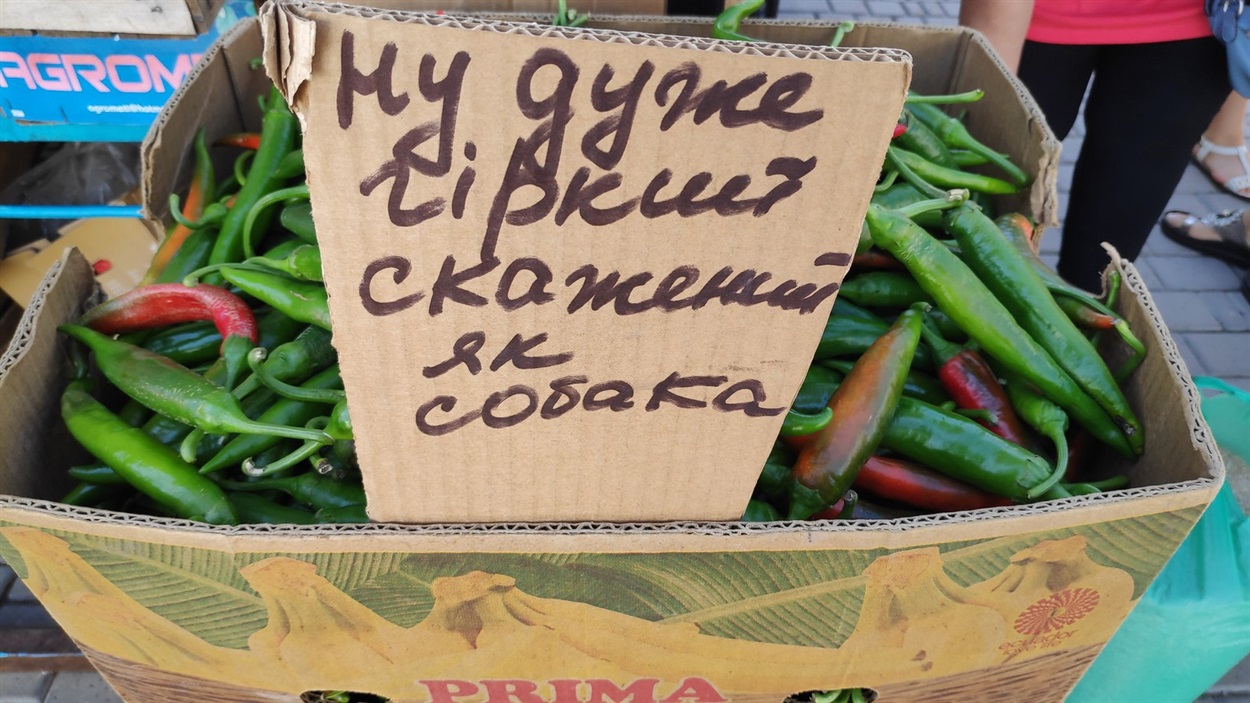 AGROM
ну дуже
гіркий
скажений
як
собака
PRIMA
ecuador